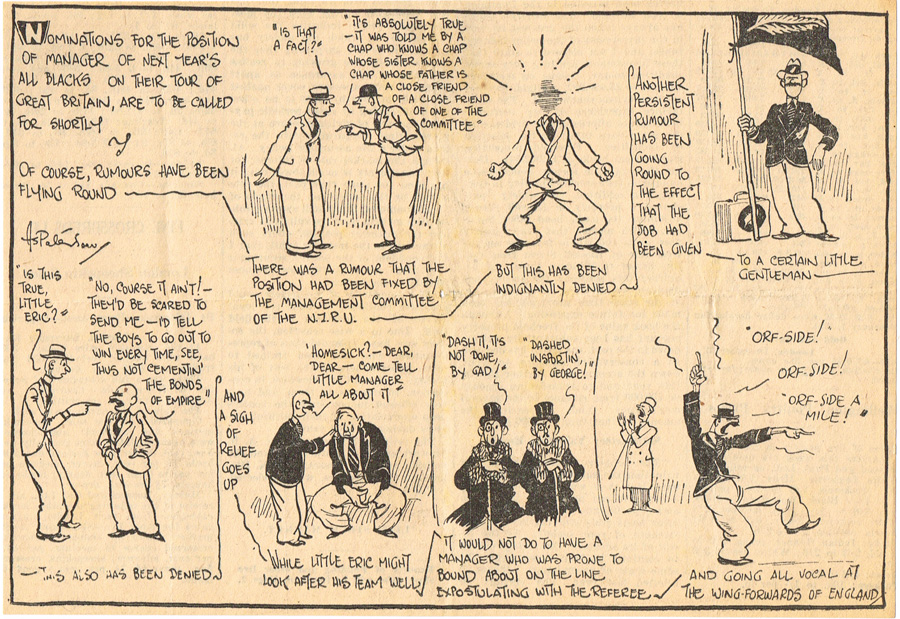 NOMINATIONS FOR THE POSITION
OF MANAGER OF NEXT YEAR'S
ALL BLACKS ON THEIR TOUR OF
GREAT BRITAIN, ARE TO BE CALLED
FOR SHORTLY
OF COURSE, RUMOURS HAVE BEEN
FLYING ROUND
"IS THAT
A FACT?"
"IT'S ABSOLUTELY TRUE
—IT WAS TOLD ME BY A
CHAP WHO KNOWS A CHAP
WHOSE SISTER KNOWS A
CHAP WHOSE FATHER IS
A CLOSE FRIEND
OF A CLOSE FRIEND
OF ONE OF THE
COMMITTEE"
THERE WAS A RUMOUR THAT THE
POSITION HAD BEEN FIXED BY
THE MANAGEMENT COMMITTEE
OF THE N.Z.R.U.
BUT THIS HAS BEEN
INDIGNANTLY DENIED
ANOTHER
PERSISTENT
RUMOUR
HAS BEEN
GOING
ROUND TO
THE EFFECT
THAT THE
JOB HAD
BEEN GIVEN
TO A CERTAIN LITTLE
GENTLEMAN
"IS THIS
TRUE,
LITTLE
ERIC?"
"NO, COURSE IT AIN'T!—
THEY'D BE SCARED TO
SEND ME—I'D TELL
THE BOYS TO GO OUT TO
WIN EVERY TIME, SEE,
THUS NOT 'CEMENTIN'
THE BONDS
OF EMPIRE"
—THIS ALSO HAS BEEN DENIED
AND
A SIGH
OF
RELIEF
GOES
UP
'HOMESICK?—DEAR,
DEAR—COME TELL
LITTLE MANAGER
ALL ABOUT IT"
WHILE LITTLE ERIC MIGHT
LOOK AFTER HIS TEAM WELL
"DASH IT, IT'S
NOT DONE,
BY GAD!"
"DASHED
UNSPORTIN',
BY GEORGE!"
IT WOULD NOT DO TO HAVE A
MANAGER WHO WAS PRONE TO
BOUND ABOUT ON THE LINE
EXPOSTULATING WITH THE REFEREE
"ORF-SIDE!"
ORF-SIDE!
"ORF-SIDE A
MILE!"
AND GOING ALL VOCAL AT
THE WING-FORWARDS OF ENGLAND